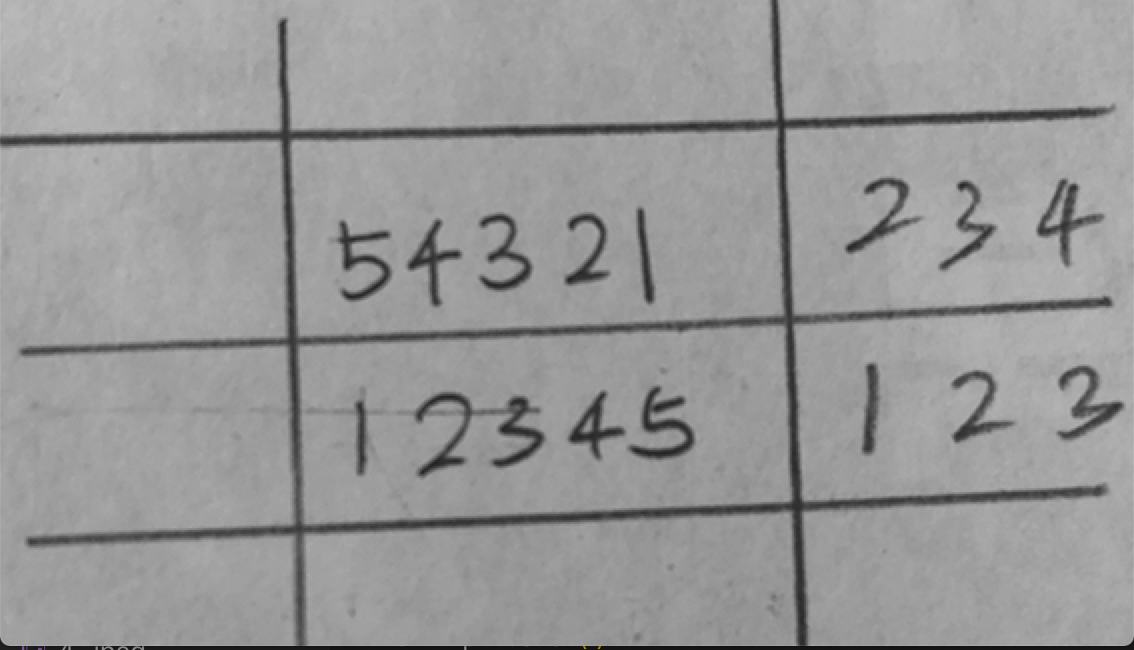 54321 234
12345 123